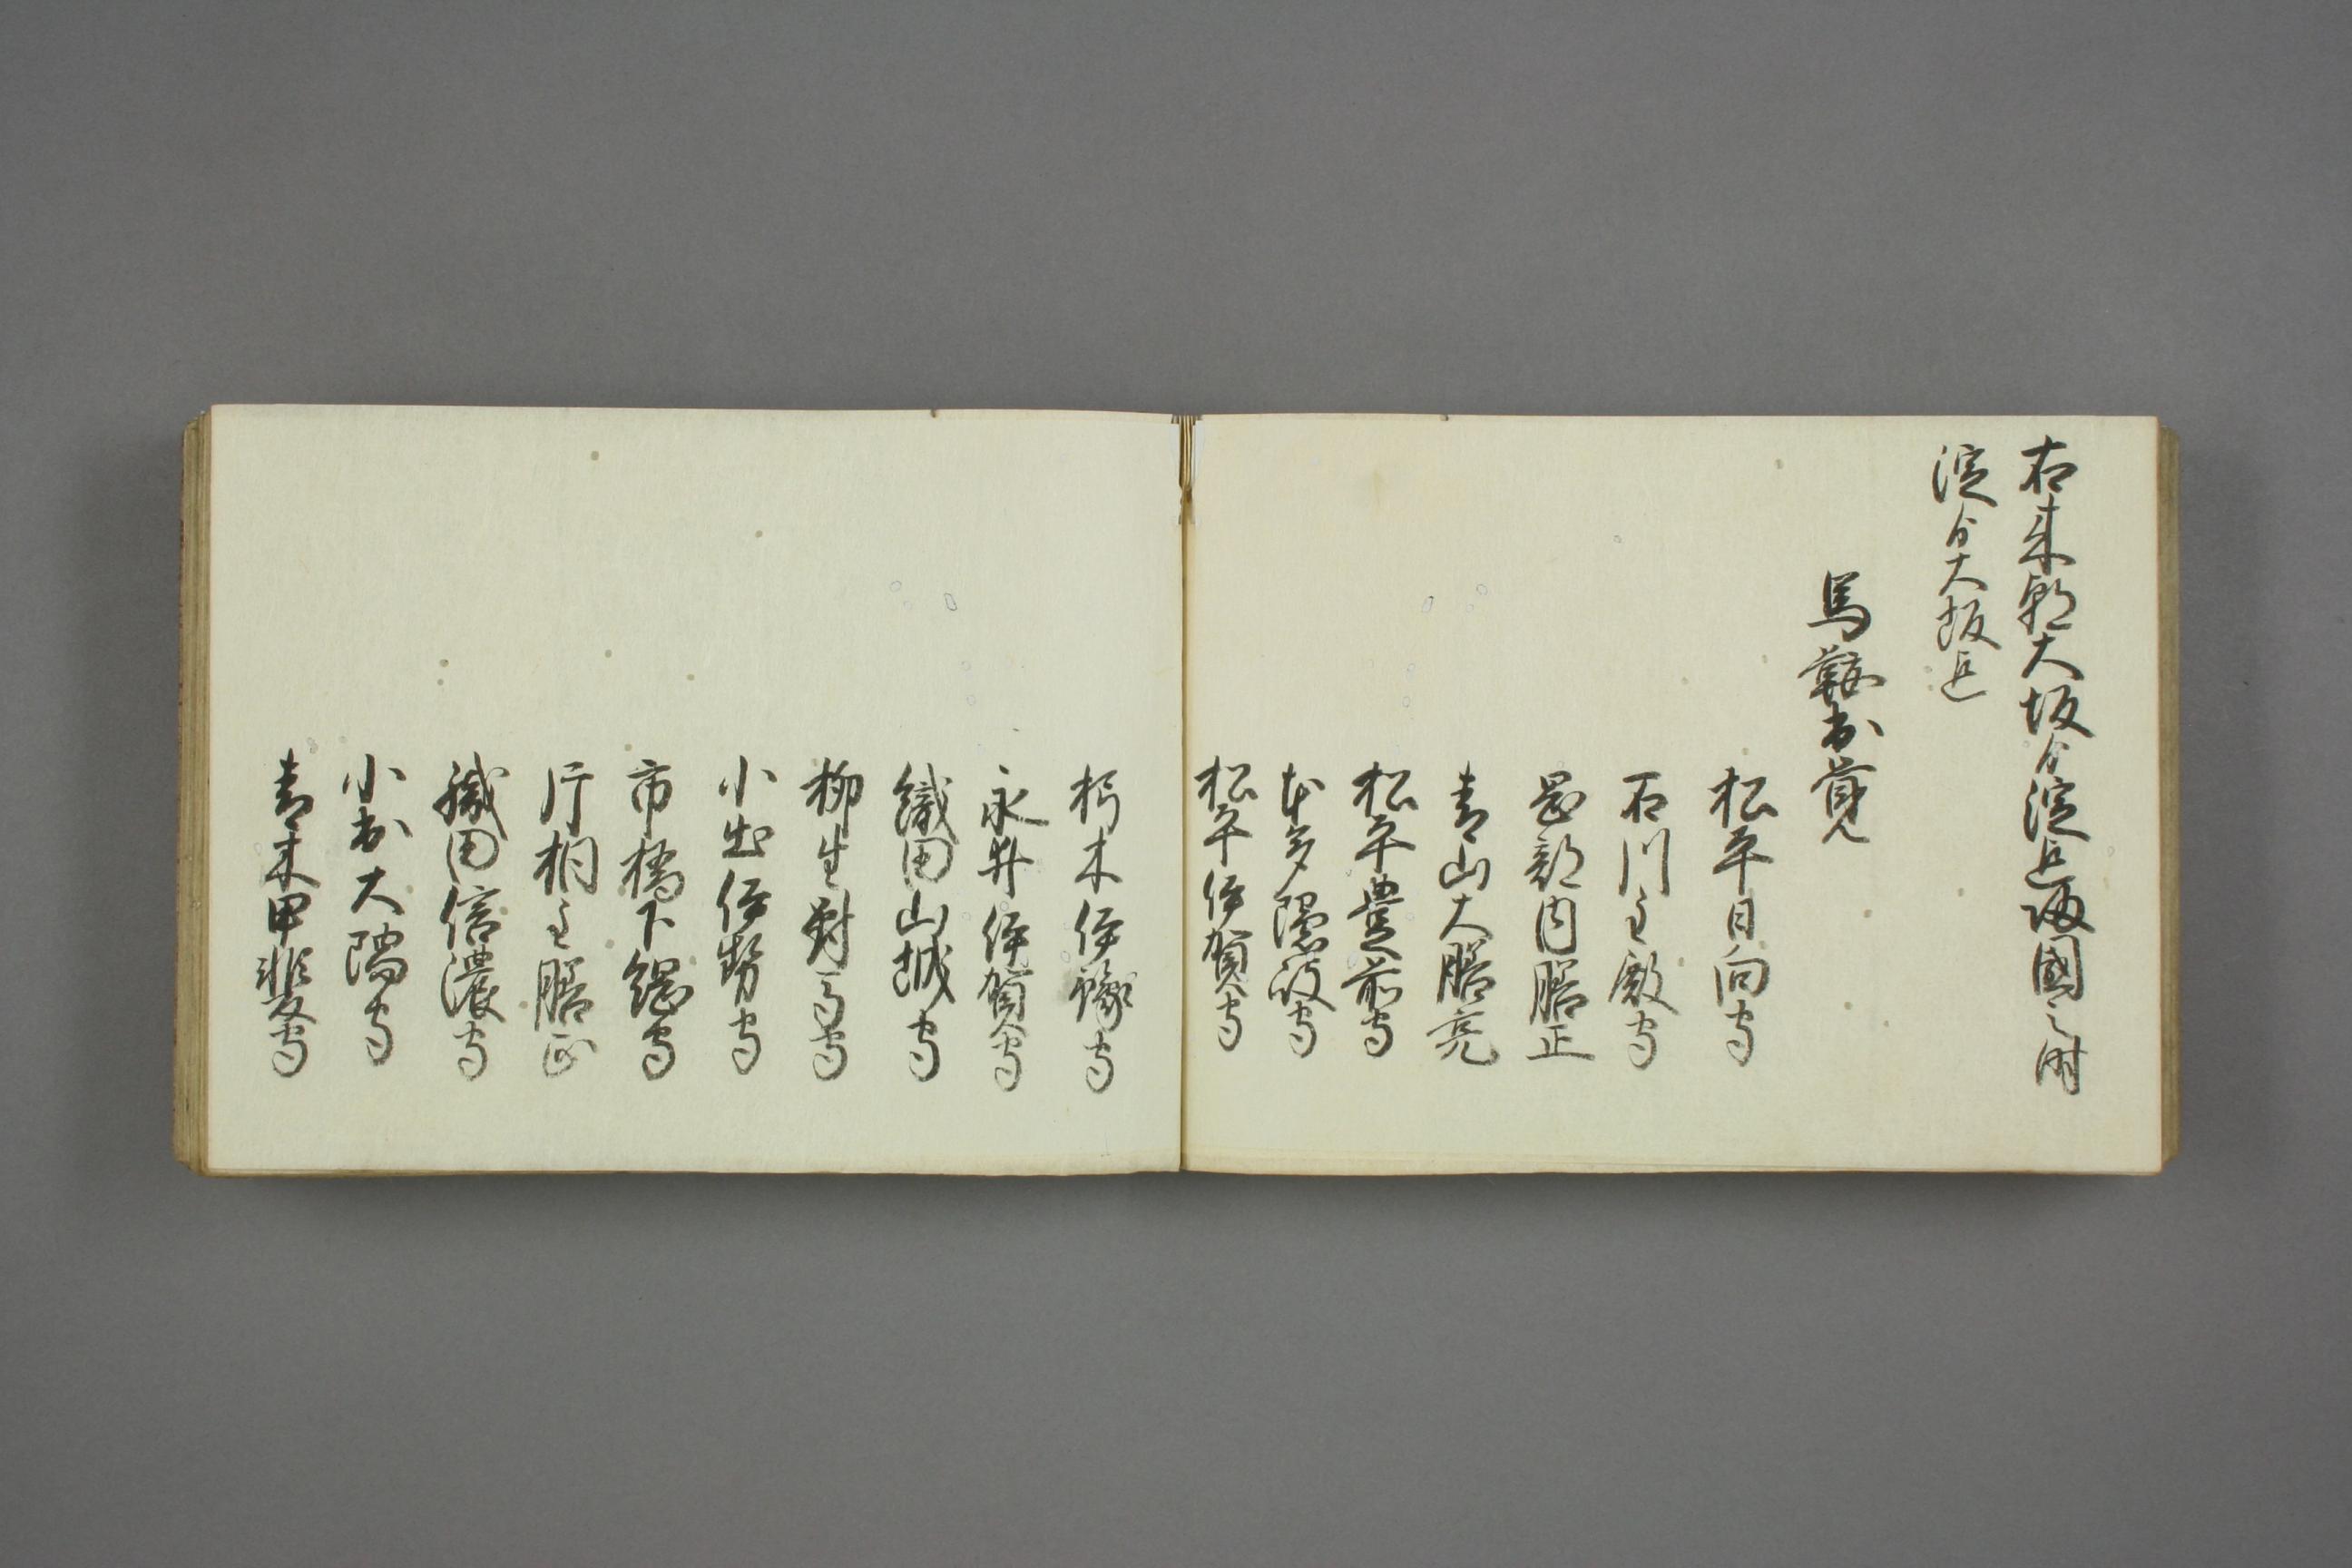 右来朝大坂ゟ淀迄帰國之時
淀ゟ大坂迄
馬鞍出覚
松平日向守
石川主殿守
岡部内膳正
青山大膳亮
松平豊前守
本多隠岐守
松平伊賀守
朽木伊豫守
永井伊賀守
織田山城守
柳生對馬守
小出伊勢守
市橋下総守
片桐主膳正
織田信濃守
小出大隅守
青木甲斐守